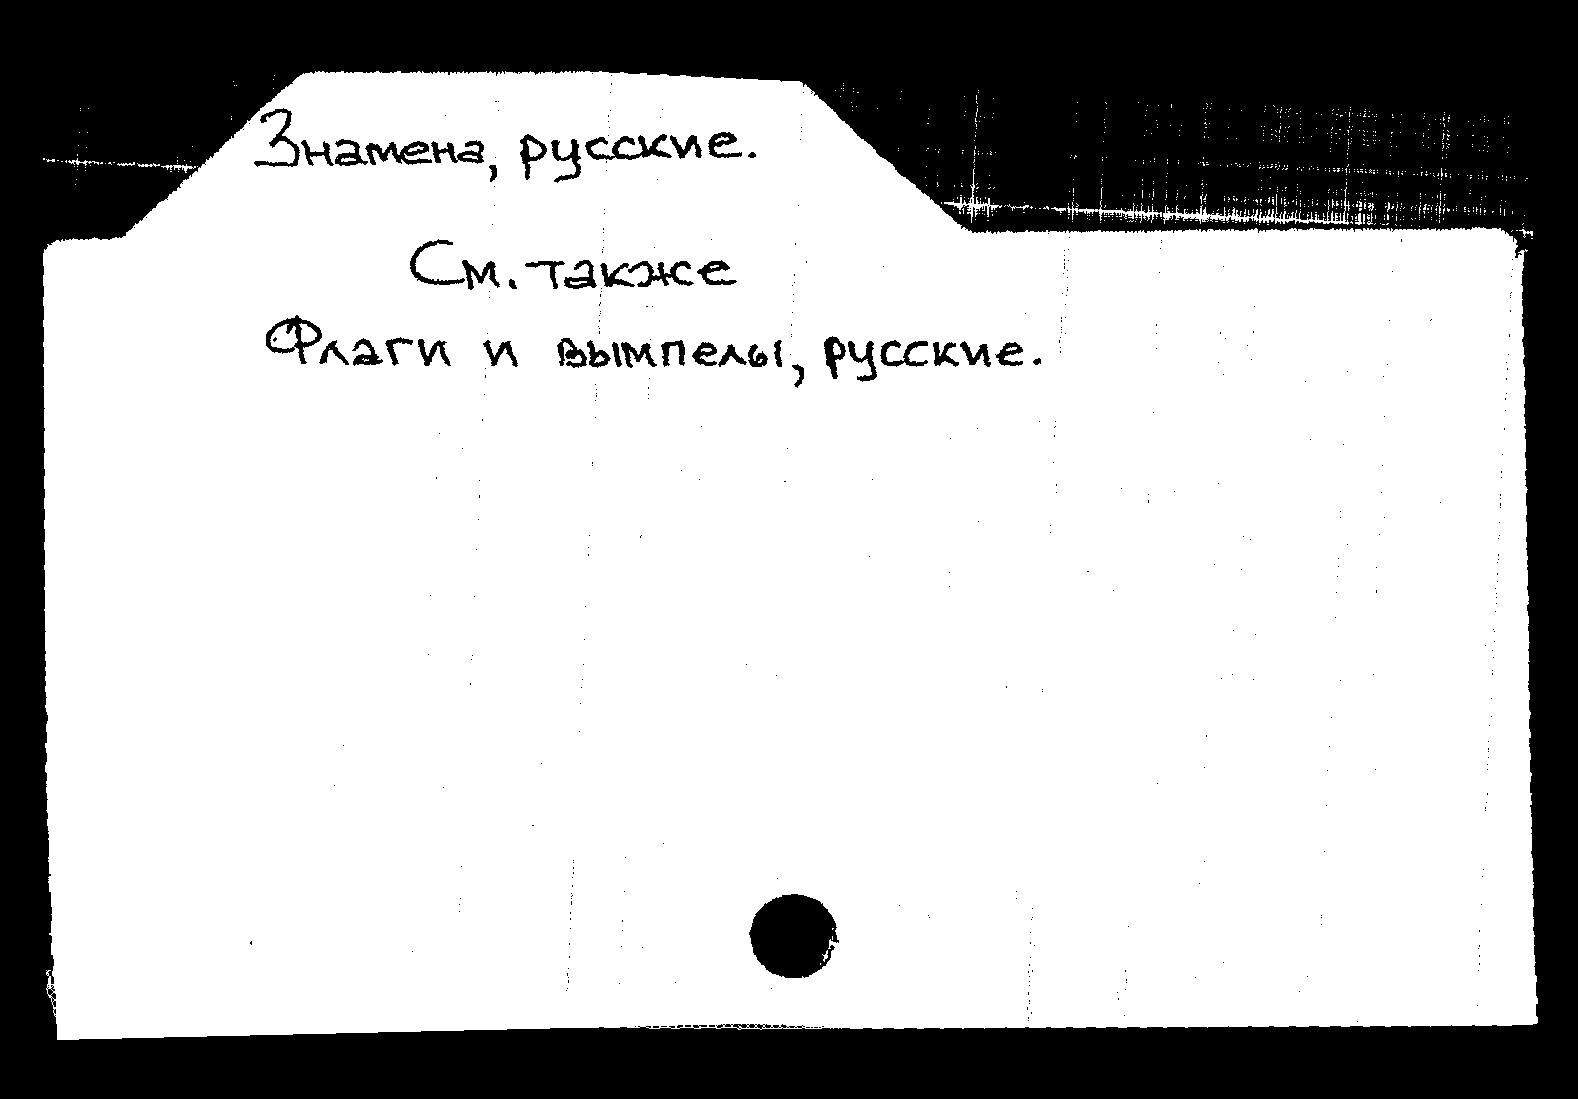 Знамена, русские.
См. также
Флаги и вымпелы, русские.